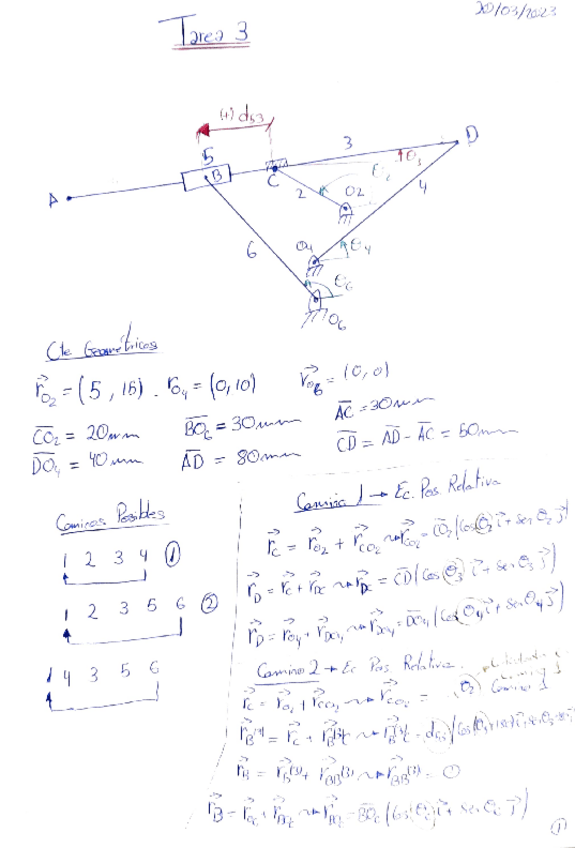 20/03/2023
Tarea 3
(+) d53
5
B
3
D
A
C
θ3
2
O2
4
6
O4
θ4
θ6
O6
Cte Geométricos
r⃗O2 = (5, 15). rO4 = (0,10) r⃗O6 = (0,0)
C̅O̅2 = 20mm B̅O̅6 = 30mm A̅C̅ = 30mm
D̅O̅4 = 40mm A̅D̅ = 80mm C̅D̅ = A̅D̅ - A̅C̅ = 50mm
Caminos Posibles
1 2 3 4 ①
1 2 3 5 6 ②
1 4 3 5 6
Camino 1 → Ec. Pos. Relativa
r⃗C = r⃗O2 + r⃗CO2 ⇝ r⃗CO2 = C̅O̅2 (cos θ2 i⃗ + sen θ2 j⃗)
r⃗D = r⃗C + r⃗DC ⇝ r⃗DC = C̅D̅ (cos θ3 i⃗ + sen θ3 j⃗)
r⃗D = r⃗O4 + r⃗DO4 ⇝ r⃗DO4 = D̅O̅4 (cos θ4 i⃗ + sen θ4 j⃗)
Camino 2 → Ec. Pos. Relativa.
r⃗C = r⃗O2 + r⃗CO2 ⇝ r⃗CO2 = θ2 Camino 1
r⃗B(3) = r⃗C + r⃗B(3)C ⇝ r⃗B(3)C = d53
r⃗B = r⃗B(3) + r⃗BB(3) ⇝ r⃗BB(3) = 0
r⃗B = r⃗O6 + r⃗BO6 ⇝ r⃗BO6 = B̅O̅6 (cos θ6 i⃗ + sen θ6 j⃗)
①